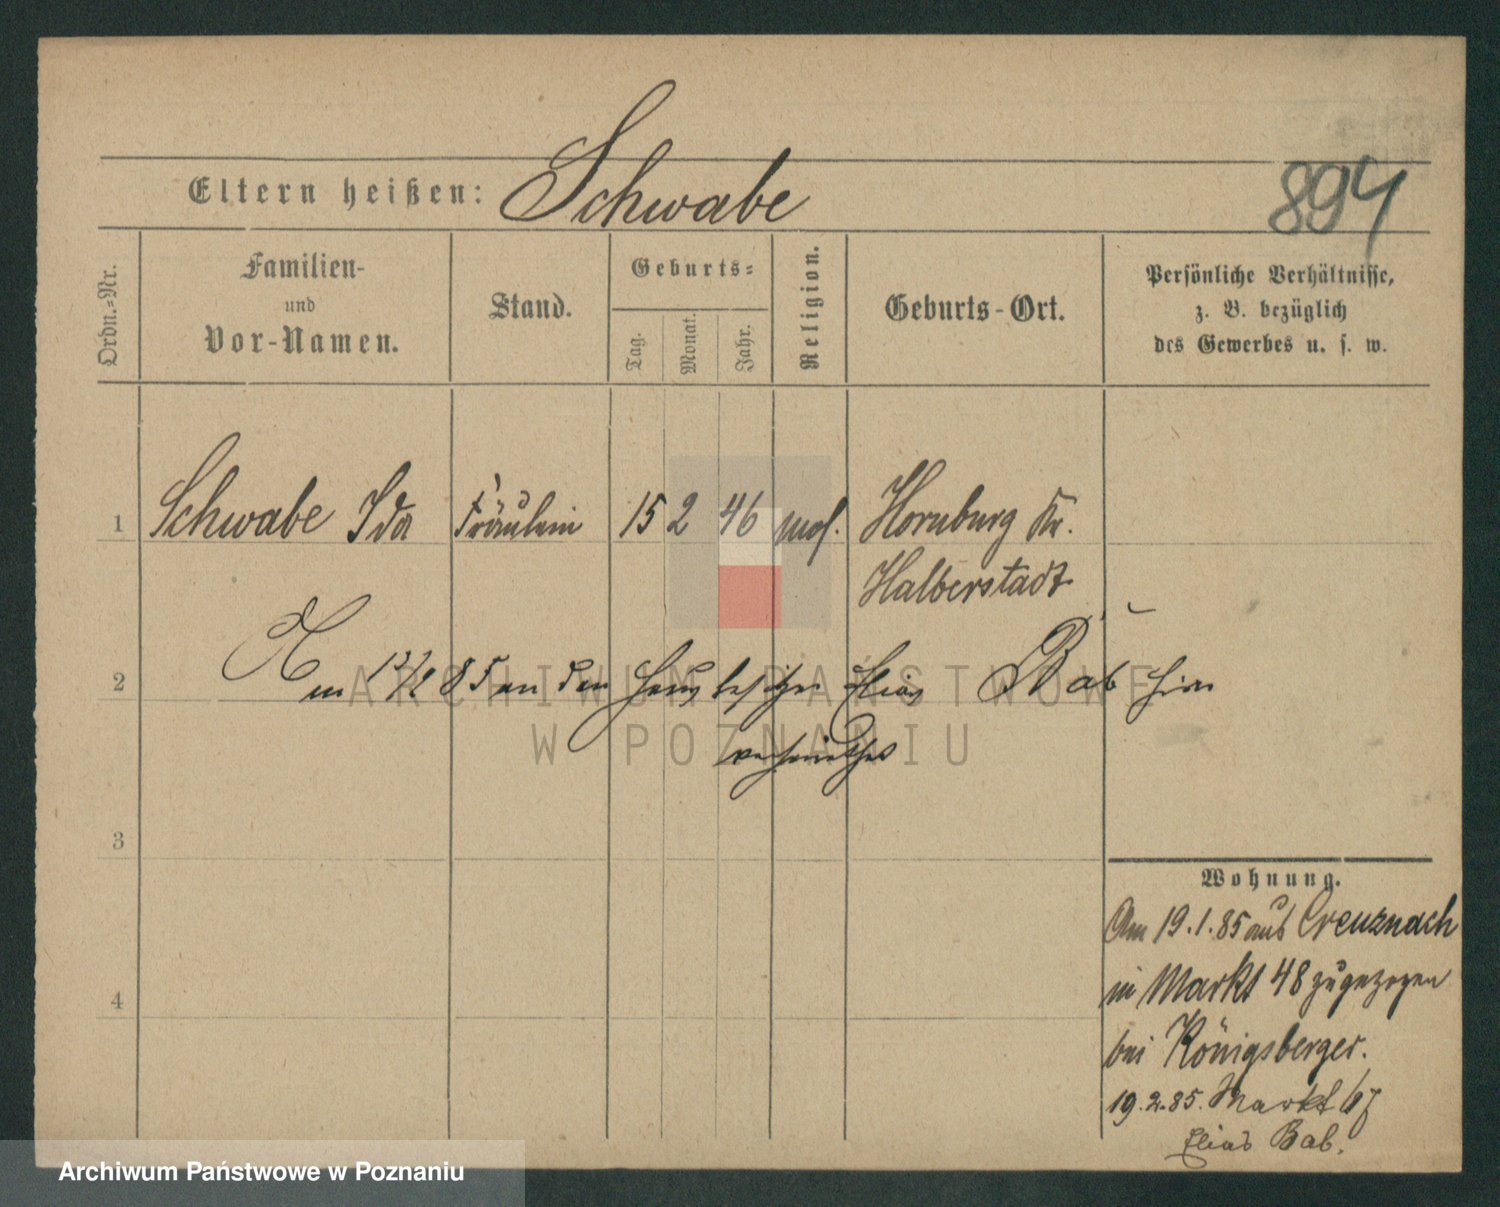 Eltern heißen: Schwabe
894
Ordn.-Nr.
Familien-
und
Vor-Namen.
Stand.
Geburts-
Tag.
Monat.
Jahr.
Religion.
Geburts-Ort.
Persönliche Verhältnisse,
z. B. bezüglich
des Gewerbes u. s. w.
1 Schwabe Ida Fräulein 15 2 46 mos. Hornburg Kr.
Halberstadt
2 Am 13/2 85 an den Hausbesitzer Elias Bab hier
verheirathet
3
4
Wohnung.
Am 19.1.85 aus Creuznach
in Markt 48 zugezogen
bei Königsberger.
19.2.85. Markt 67
Elias Bab.
ARCHIWUM PAŃSTWOWE
W POZNANIU
Archiwum Państwowe w Poznaniu